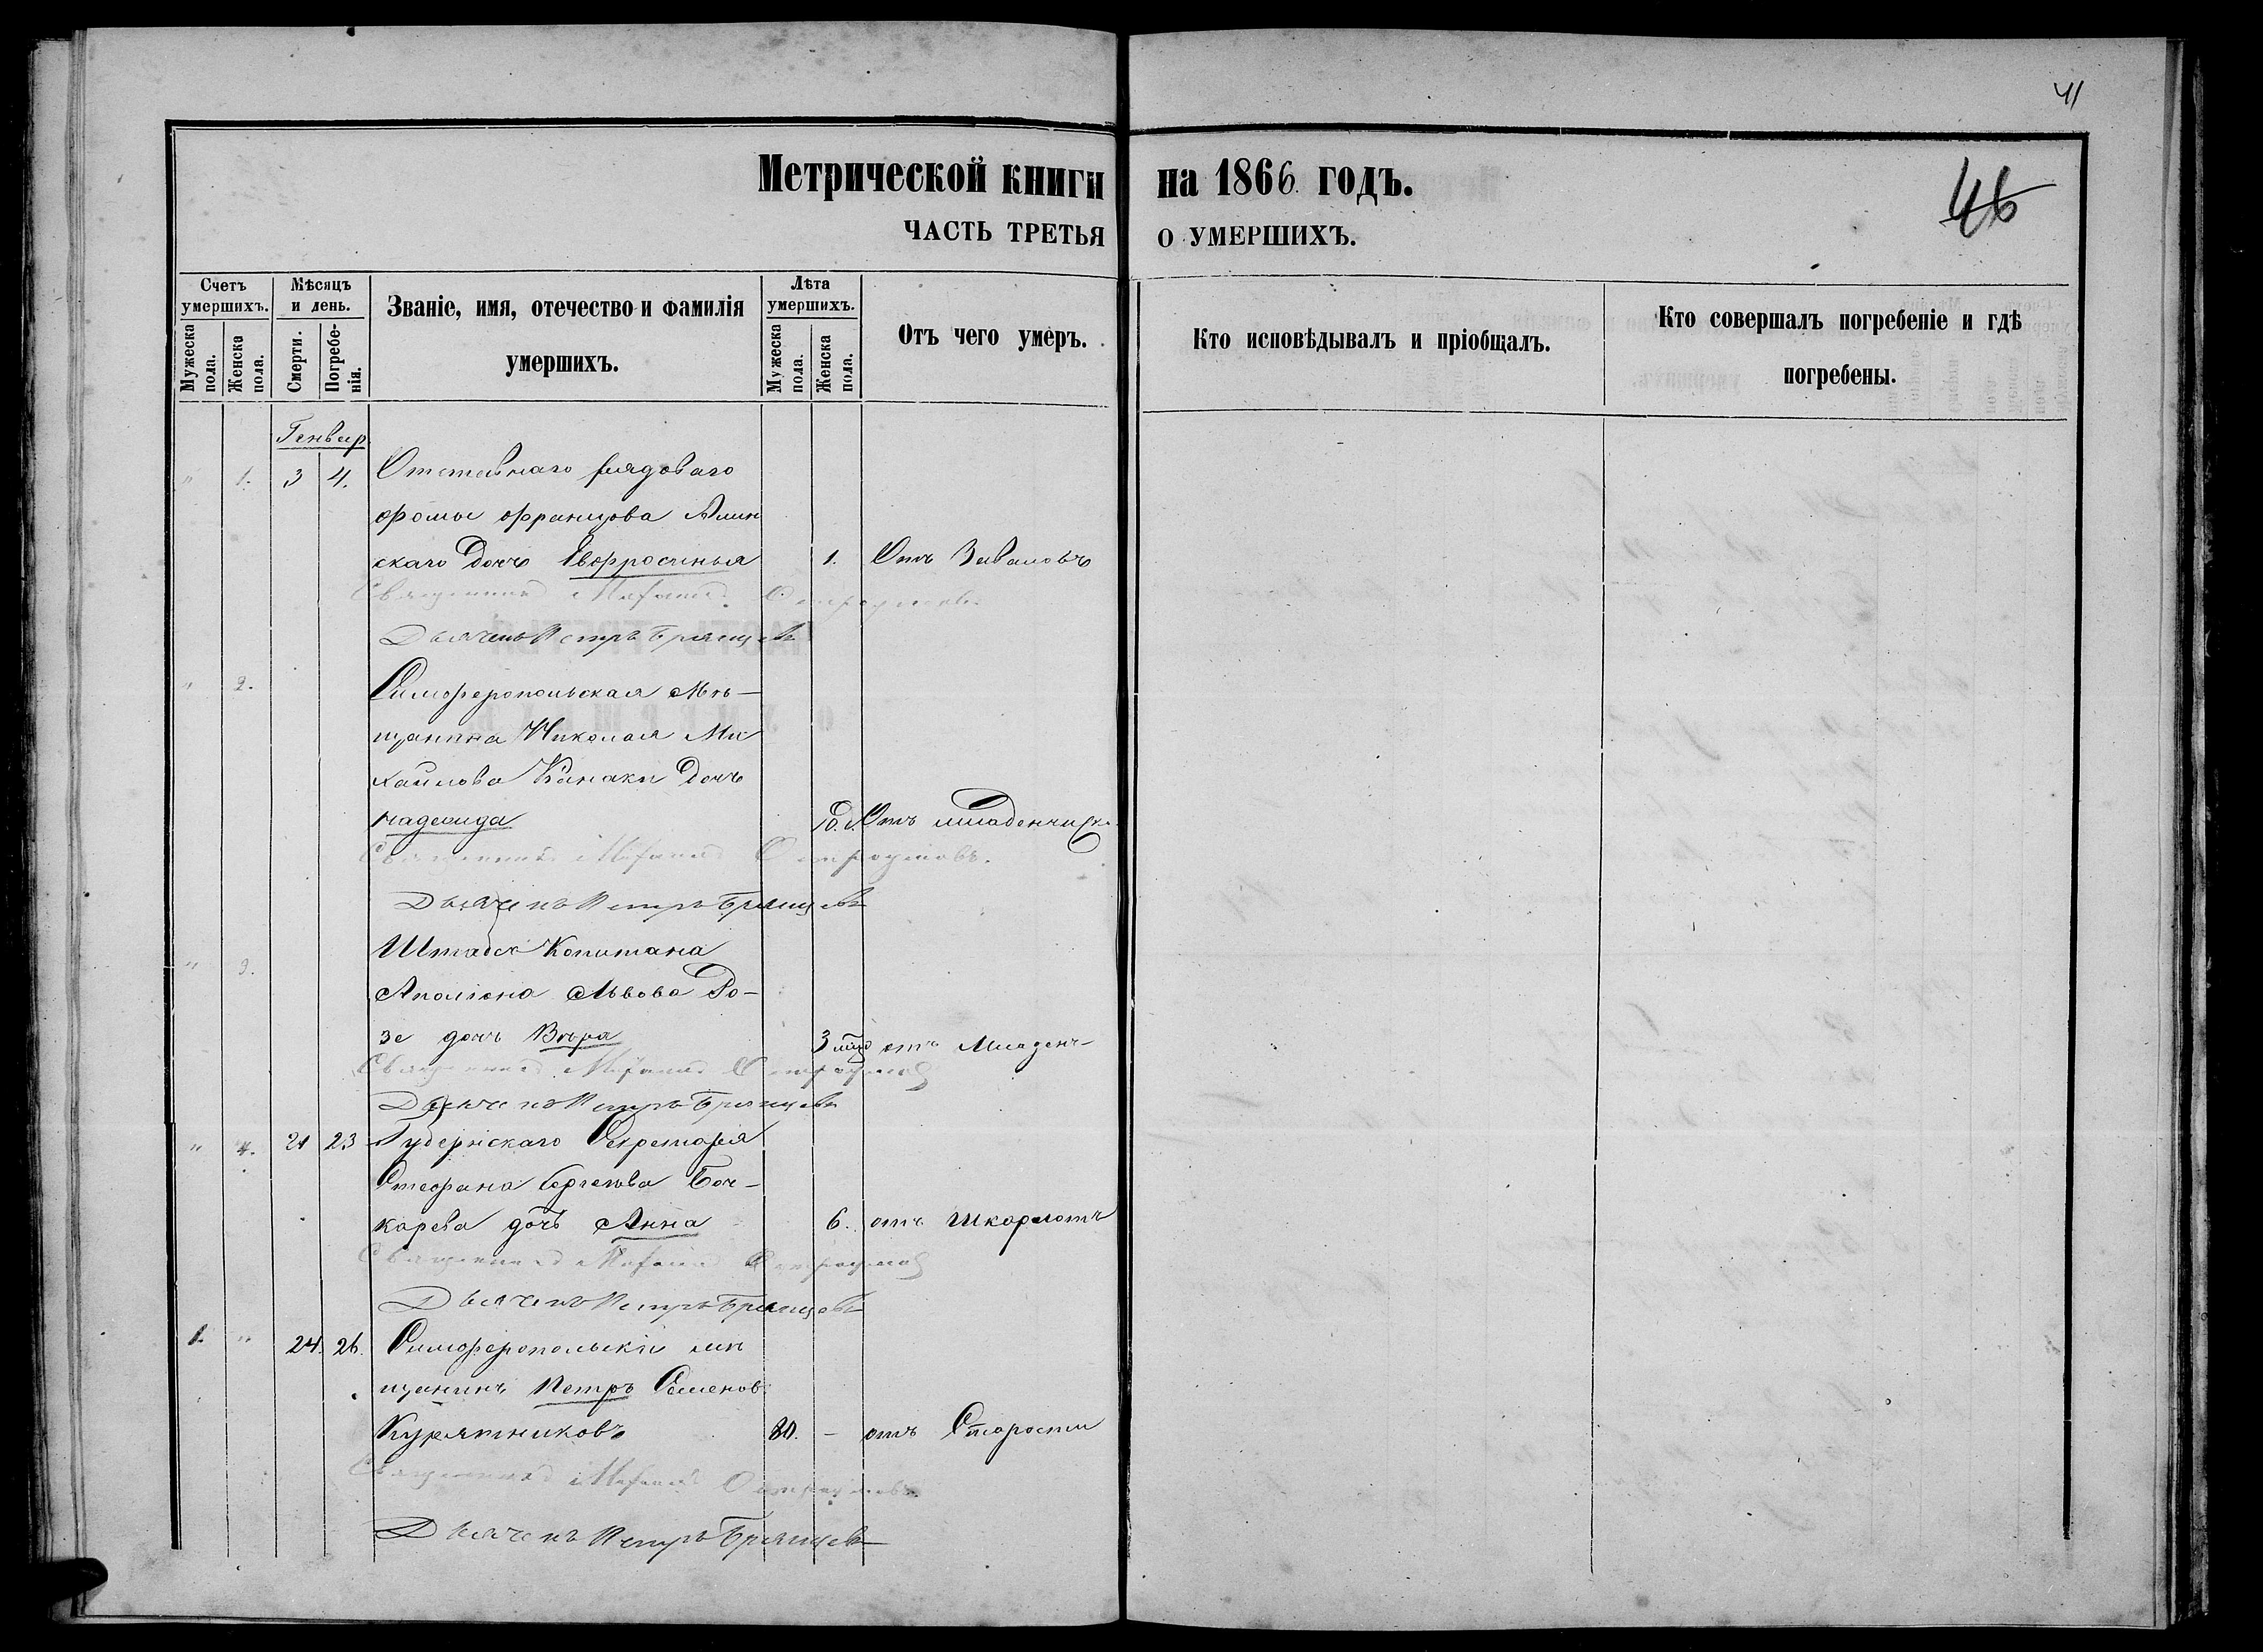 41
46
Метрической книги на 1866 годъ.
ЧАСТЬ ТРЕТЬЯ О УМЕРШИХЪ.
Счетъ умершихъ.
Мужеска пола.
Женска пола.
Мѣсяцъ и день.
Смерти.
Погребенія.
Званіе, имя, отечество и фамилія умершихъ.
Лѣта умершихъ.
Мужеска пола.
Женска пола.
Отъ чего умеръ.
Кто исповѣдывалъ и пріобщалъ.
Кто совершалъ погребеніе и гдѣ погребены.
Генвар
" 1. 3 4. Отставнаго рядоваго
Фомы Францова
скаго дочь Евфросинья 1. Отъ Заваловъ
Священникъ
Дьячекъ Петръ Брянцевъ
" 2. Симферопольская мѣ-
щанина Николая Ми
хайлова Канаки дочь
Надежда Отъ младенческ.
Священникъ
Дьячекъ Петръ Брянцевъ
" 3. Штабсъ Капитана
Аполона Львова Ро-
зе дочь Вѣра 3 отъ Младен-
Священникъ
Дьячекъ Петръ Брянцевъ
" 4. 21 23 Губернскаго Секретаря
Стефана Сергеева Боч-
карева дочь Анна 6. отъ Шкарлотъ
Священникъ
Дьячекъ Петръ Брянцевъ
1. " 24. 26. Симферопольскій мѣ
щанинъ Петръ Семенов
Курятниковъ 80. - отъ Старости
Священникъ
Дьячекъ Петръ Брянцевъ